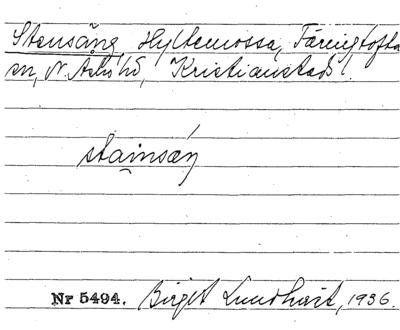 Stensäng, Hyltemossa, Färingtofta
sn, N. Åsbo hd, Kristianstads l.
stainsäŋ
Nr 5494. Birget Lundkvist, 1936.